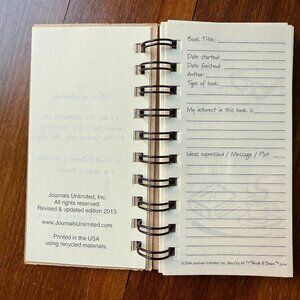 Journals Unlimited, Inc.
All rights reserved.
Revised & updated edition 2013.
www.JournalsUnlimited.com
Printed in the USA
using recycled materials.
Book Title:
Date started
Date finished
Author
Type of book
My interest in this book is
Ideas expressed / Message / Plot
© 2004 Journals Unlimited, Inc. Bay City, MI "Write it Down"™ Series